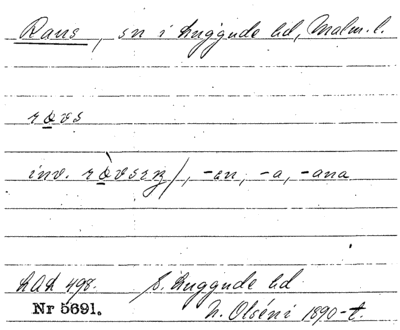 Raus, sn i Luggude hd, Malm. l.
råvs
inv. råvsɪŋ/, -en, -a, -ana
LAL 498.
S. Luggude hd
Nr 5691.
N. Olséni 1890-t.